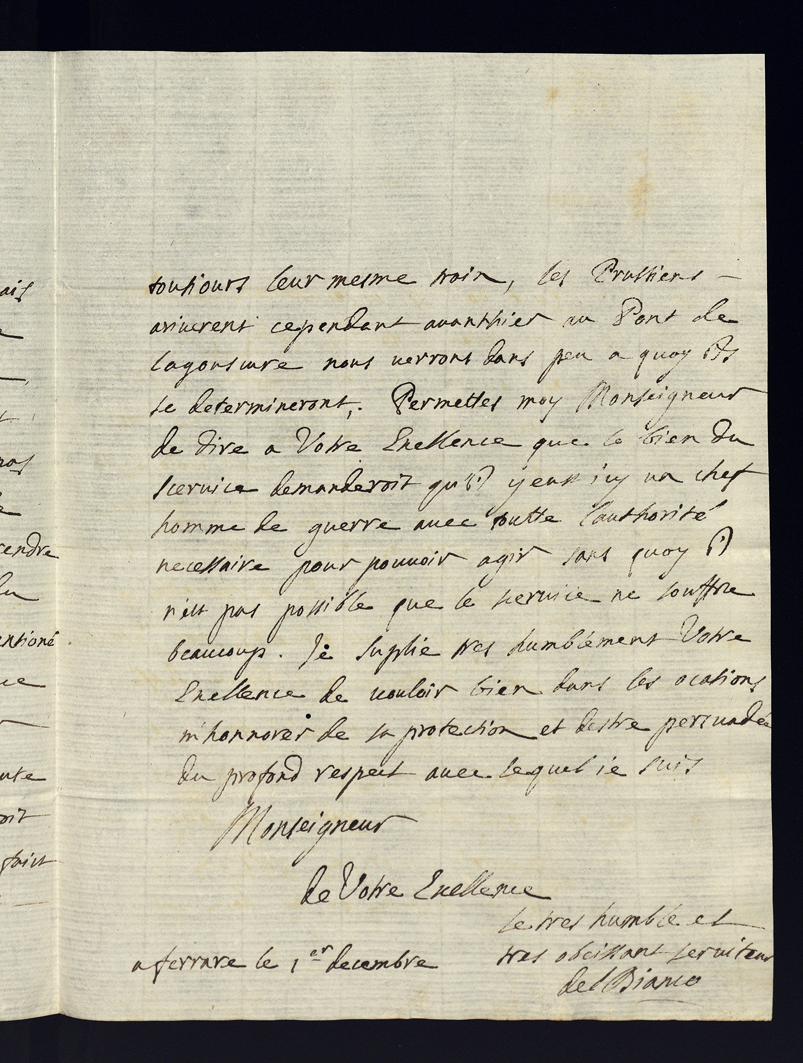 ais
rendre
entioné
toutiours leur mesme train, les Prussiens —
ariverent cependant avanthier au Pont de
lagoscure nous verrons dans peu a quoy ils
se determineront,. Permettes moy Monseigneur
de dire a Votre Exellence que le bien du
service demanderoit qu'il y eust icy un chef
homme de guerre avec toutte l'authorité
necessaire pour pouvoir agir sans quoy il
n'est pas possible que le service ne souffre
beaucoup. Je suplie tres humblement Votre
Exellence de vouloir bien dans les ocations
m'honnorer de sa protection et destre persuadée
du profond respect avec lequel ie suis
Monseigneur
de Votre Exellence
le tres humble et
tres obeissant serviteur
del Bianco
a ferrare le 1er decembre